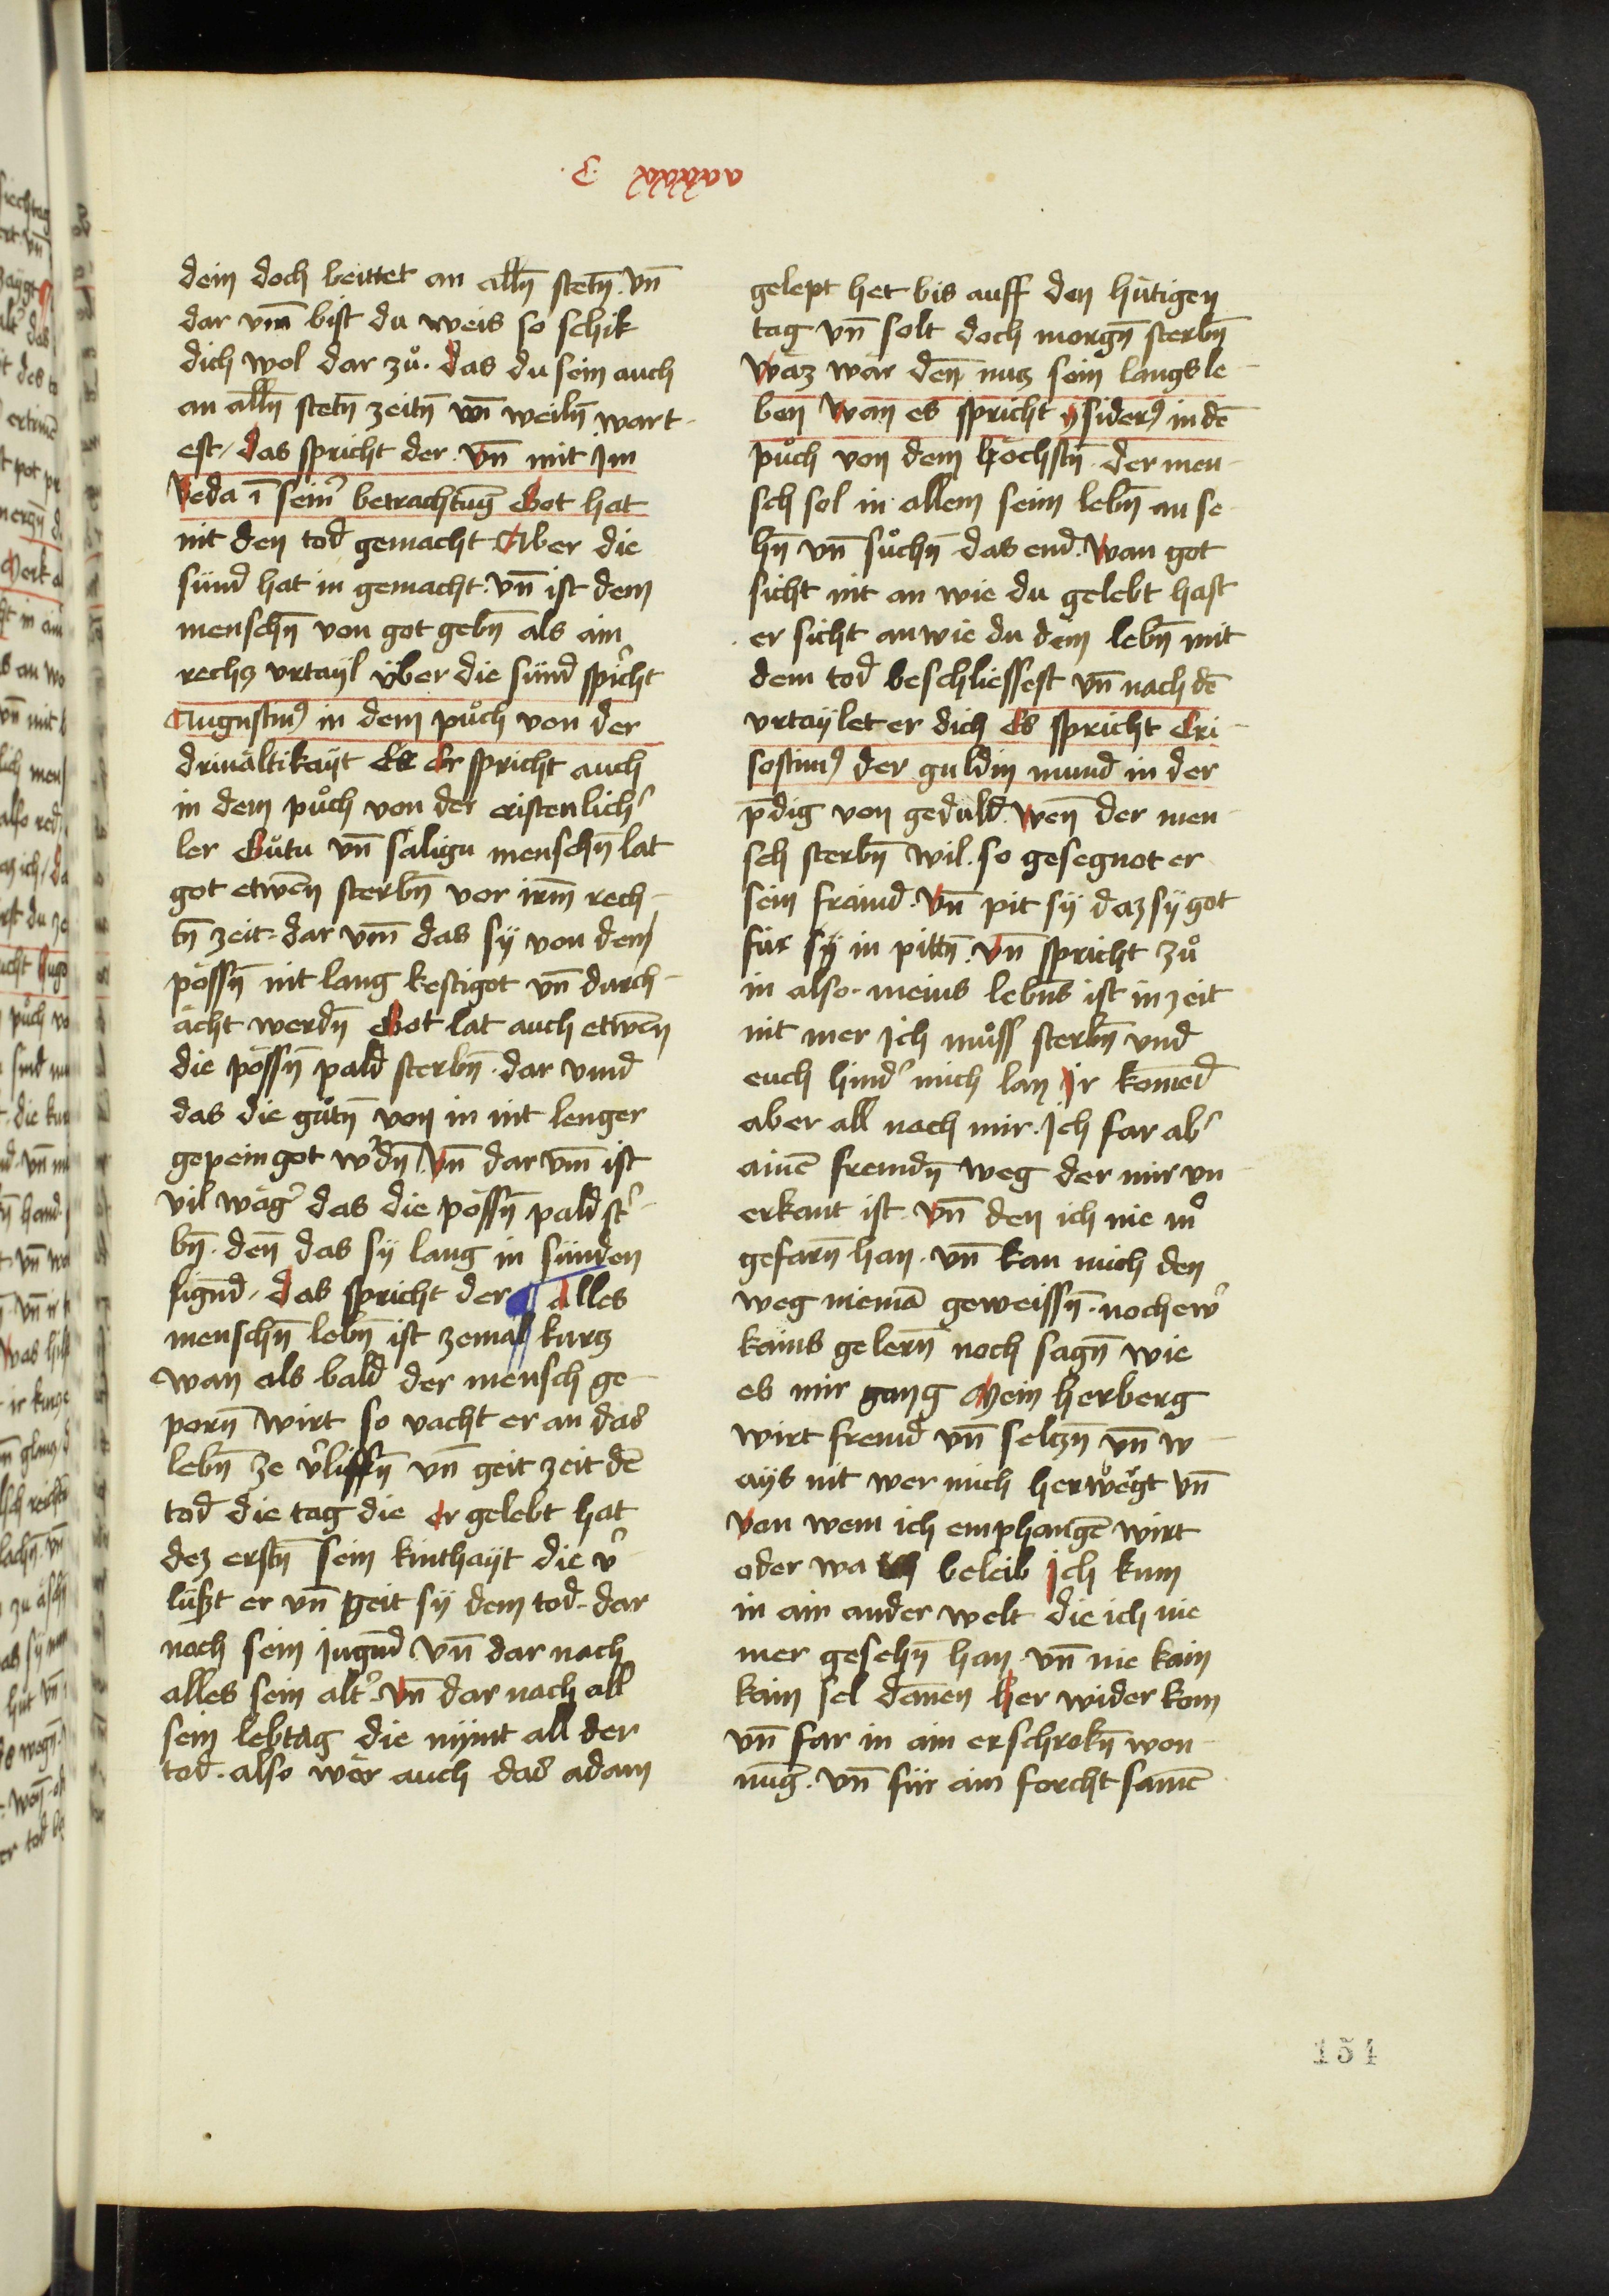 C xxxxxv
dein doch beittet an alln̄ stetn̄. vn̄
dar vm̄ bist du weis so schik
dich wol dar zů. das du sein auch
an alln̄ stetn̄ zeitn̄ vn̄ weiln̄ wart-
est / das spricht der. vn̄ mit im
Beda ī seinˀ betrachtūg Got hat
nit den tod gemacht. Aber die
sünd hat in gemacht. vn̄ ist dem
menschn̄ von got gebn̄ als ain
rechz vrtayl über die sünd spˀicht
Augustinꝰ in dem půch von der
driuältikayt Er spricht auch
in dem půch von der cristenlichˀ
ler Gůtu vn̄ säligu menschn̄ lat
got etwen̄ sterbn̄ vor irm̄ rech-
tn̄ zeit. dar vm̄ das sy von dem
pössn̄ nit lang kestigot vn̄ durch-
ächt werdn̄ Got lat auch etwen̄
die pössn̄ pald sterbn̄. dar vmb
das die gůtn̄ von in nit lenger
gepeingot wˀdn̄ vn̄ dar vm̄ ist
vil wägˀ das die pössn̄ pald stˀ-
bn̄. den̄ das sy lang in sünden
lign̄d / das spricht der alles
menschn̄ lebn̄ ist zemal kurtz
wan als bald der mensch ge-
porn̄ wirt so vacht er an das
lebn̄ ze vˀliessn̄ vn̄ geit zeit dē
tod die tag die er gelebt hat
dez erstn̄ sein kinthayt die vˀ-
lüßt er vn̄ geit sy dem tod. dar
noch sein jugn̄d vn̄ dar nach
alles sein altˀ. vn̄ dar nach all
sein lebtag die nymt all der
tod. also wër auch das adam
gelept het bis auff den hütigen
tag vn̄ solt doch morgn̄ sterbn̄
Waz wär den̄ nutz sein langs le-
ben wan̄ es spricht ysiderꝰ in dē
půch von dem höchstn̄. der men-
sch sol in allem seim lebn̄ an se-
hn̄ vn̄ sůchn̄ das end. Wan got
sicht nit an wie du gelebt hast
er sicht an wie du dein lebn̄ mit
dem tod beschliessest vn̄ nach dē
vrtaylet er dich Es spricht Cri-
sostimꝰ der guldin mund in der
p̄dig von geduld. wen̄ der men-
sch sterbn̄ wil. so gesegnot er
sein fraind. vn̄ pit sy daz sy got
für in pittn̄. vn̄ spricht zů
in also. meins lebns ist in zeit
nit mer ich můss sterbn̄ vnd
euch hindˀ mich lan Ir komed
aber all nach mir. Ich far abˀ
ainē fremdn̄ weg der mir vn-
erkant ist. vn̄ den ich nie mˀ
gefarn̄ han. vn̄ kan mich den
weg niemā geweissn̄. noch ewˀ
kains gelern̄ noch sagn̄ wie
es mir gang Mein herberg
wirt fremd vn̄ seltzn̄ vn̄ w-
ays nit wer mich herwegt vn̄
von wem ich emphangē wirt
oder wa ich beleib Ich kum
in ain ander welt die ich nie
mer gesehn̄ han. vn̄ nie kain
kain sel dan̄en her wider kom
vn̄ far in ain erschrokn̄ won-
nūg. vn̄ für ain forcht samē
154